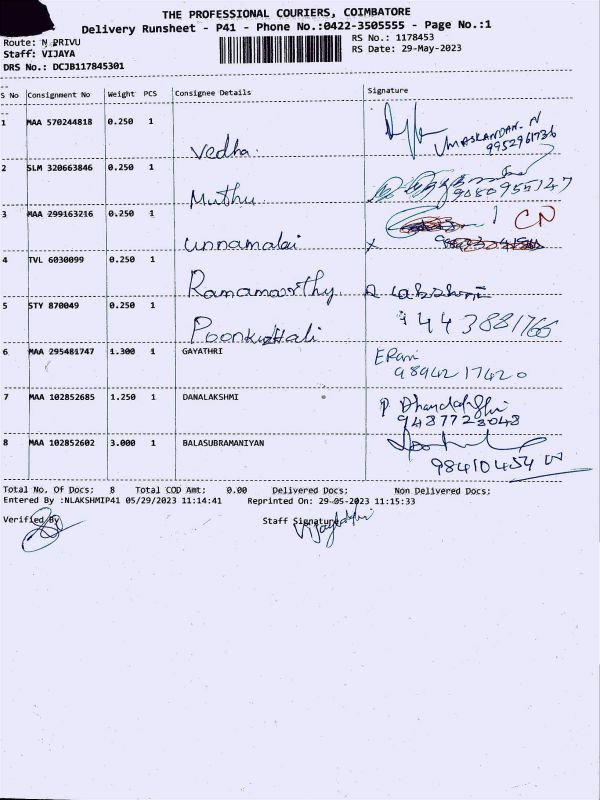 THE PROFESSIONAL COURIERS, COIMBATORE
Delivery Runsheet - P41 - Phone No.:0422-3505555 - Page No.:1
Route: N PRIVU
RS No.: 1178453
Staff: VIJAYA
RS Date: 29-May-2023
DRS No.: DCJB117845301
S No Consignment No Weight PCS Consignee Details Signature
1 MAA 570244818 0.250 1 Vedha. UMASKANDAN. N
9952961736
2 SLM 320663846 0.250 1 Muthu
3 MAA 299163216 0.250 1 Unnamalai CN
x
4 TVL 6030099 0.250 1 Ramamoorthy R Lakshmi
5 STY 870049 0.250 1 Poonkuzhali 9443881766
6 MAA 295481747 1.300 1 GAYATHRI E Rani
9894217420
7 MAA 102852685 1.250 1 DANALAKSHMI
9487723048
8 MAA 102852602 3.000 1 BALASUBRAMANIYAN
Total No. Of Docs: 8 Total COD Amt: 0.00 Delivered Docs: Non Delivered Docs:
Entered By :NLAKSHMIP41 05/29/2023 11:14:41 Reprinted On: 29-05-2023 11:15:33
Verified By Staff Signature